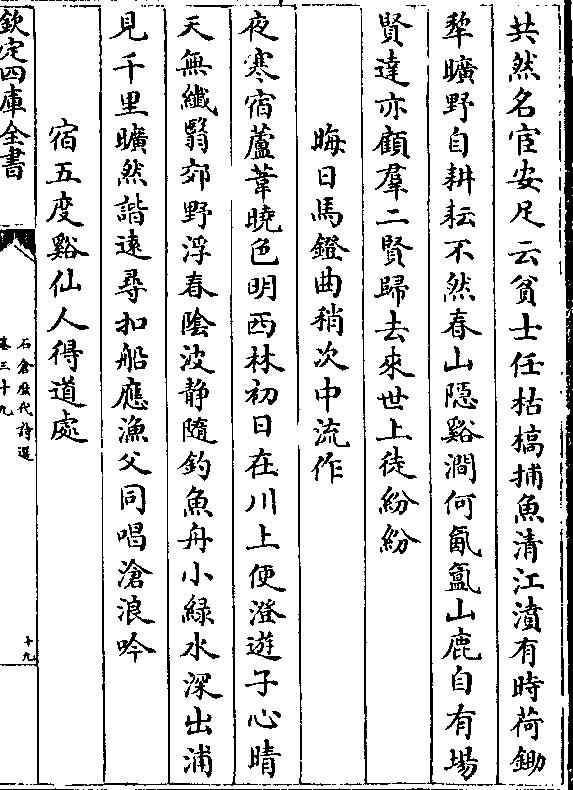 共然名宦安足云貧士任枯槁捕魚清江濆有時荷鋤
犂曠野自耕耘不然春山隱谿澗何氤氳山鹿自有場
賢達亦顧羣二賢歸去來世上徒紛紛
晦日馬鐙曲稍次中流作
夜寒宿蘆葦曉色明西林初日在川上便澄遊子心晴
天無纖翳郊野浮春陰波静隨釣魚舟小緑水深出浦
見千里曠然諧遠尋扣船應漁父同唱滄浪吟
宿五度谿仙人得道處
欽定四庫全書
石倉歷代詩選
卷三十九
十九